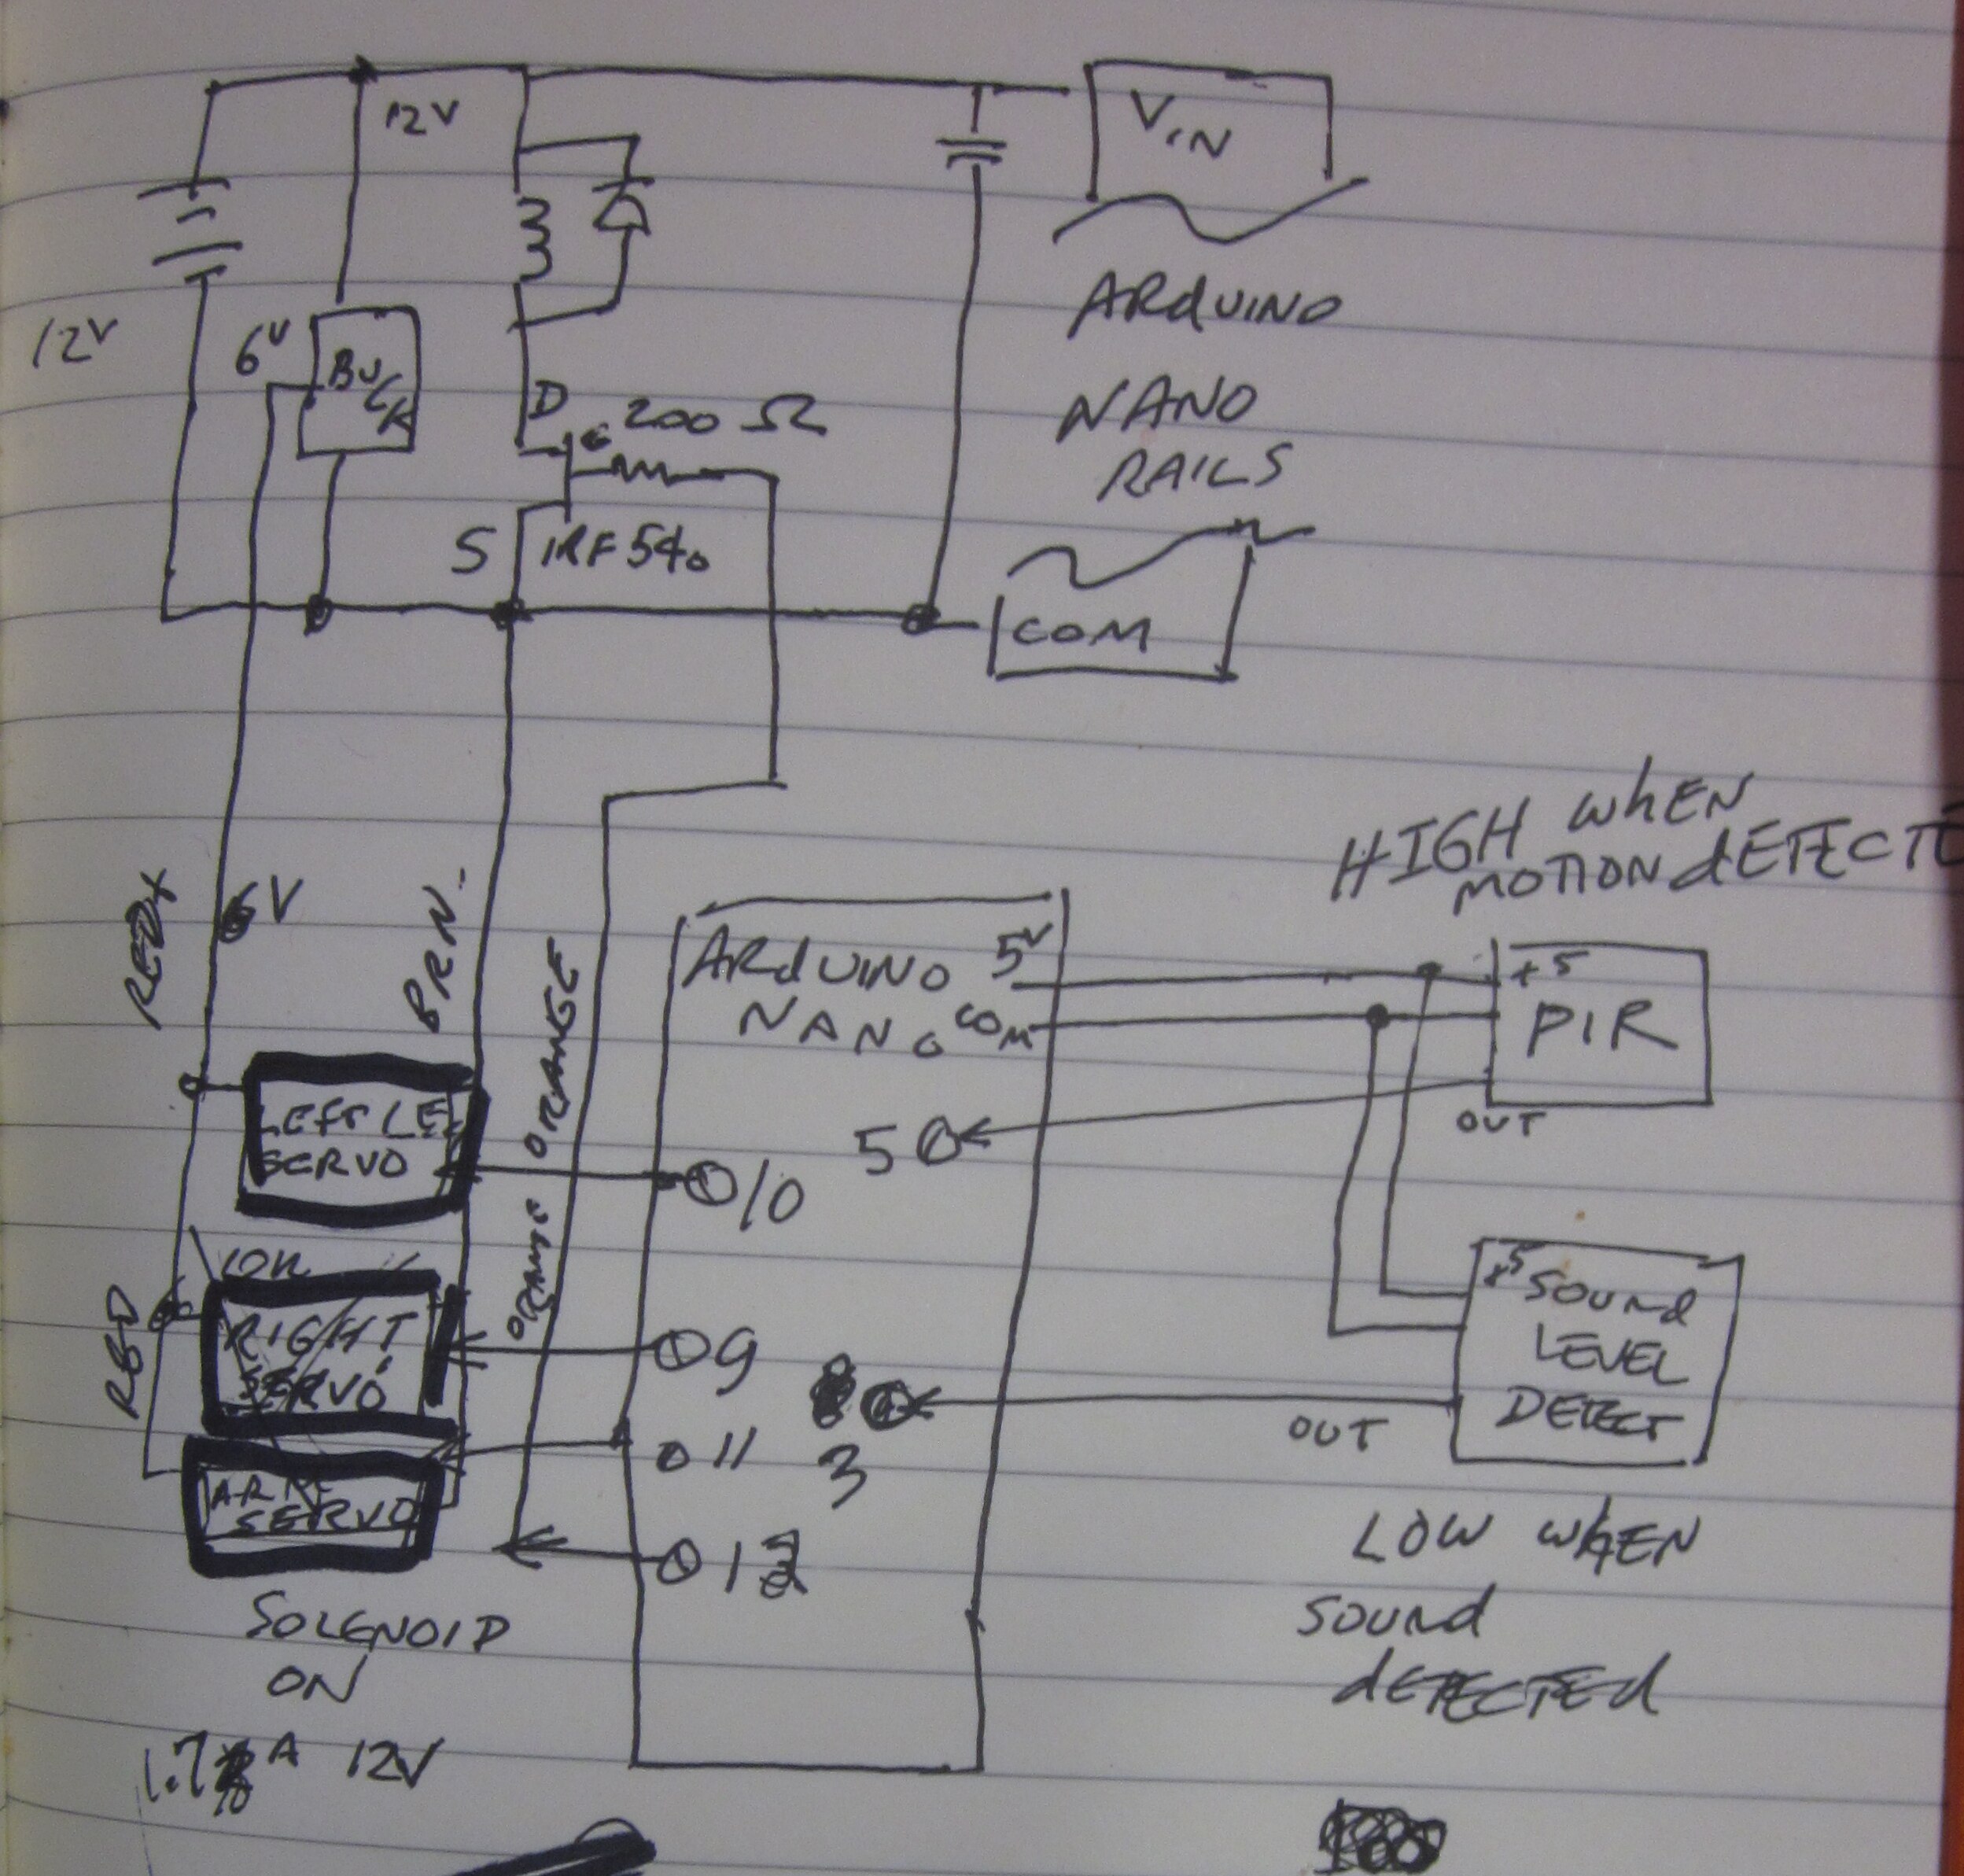 12V
VIN
12V
6V
BUCK
ARdUINO
NANO
RAILS
D
G 200 Ω
S
IRF540
COM
HIGH WHEN
MOTION dETECTE
RED
6V
BRN.
ORANGE
ARdUINO 5V
NANO COM
+5
PIR
OUT
5
LEFT LE
SERVO
10
ORANGE
RED
RIGHT
SERVO
9
+5 SOUNd
LEVEL
DETECT
OUT
11
3
ARM
SERVO
LOW WHEN
SOUNd
dETECTEd
SOLENOID
ON
1.7 A 12V